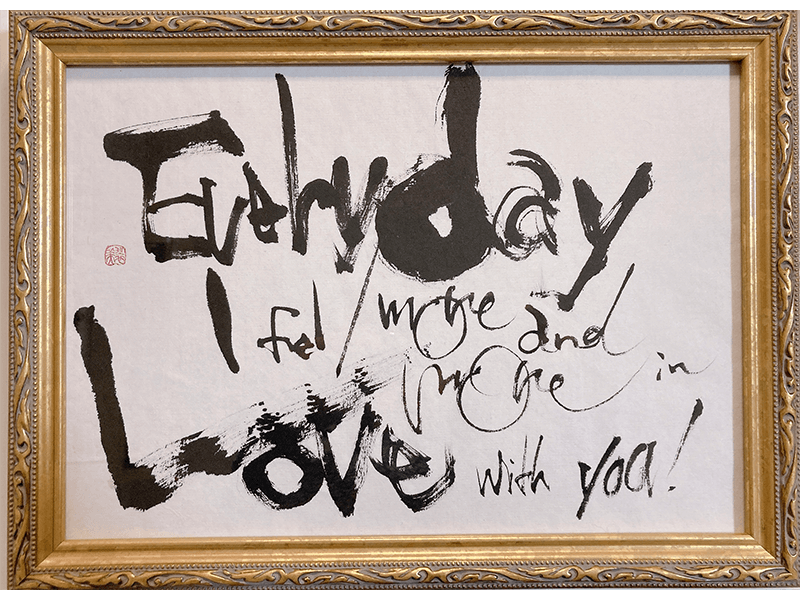 Everyday
I feel more and
more in
Love with you!